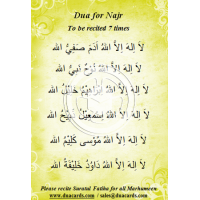 Dua for Najr
To be recited 7 times
لَا اِلٰهَ اِلَّا اللهُ اٰدَمُ صَفِيُّ الله
لَا اِلٰهَ اِلَّا اللهُ نُوْحٌ نَبِيُّ الله
لَا اِلٰهَ اِلَّا اللهُ اِبْرَاهِيْمُ خَلِيْلُ الله
لَا اِلٰهَ اِلَّا اللهُ اِسْمٰعِيْلُ ذَبِيْحُ الله
لَا اِلٰهَ اِلَّا اللهُ مُوْسٰى كَلِيْمُ الله
لَا اِلٰهَ اِلَّا اللهُ دَاوُدُ خَلِيْفَةُ الله
Please recite Suratul Fatiha for all Marhumeen
www.duacards.com / sales@duacards.com